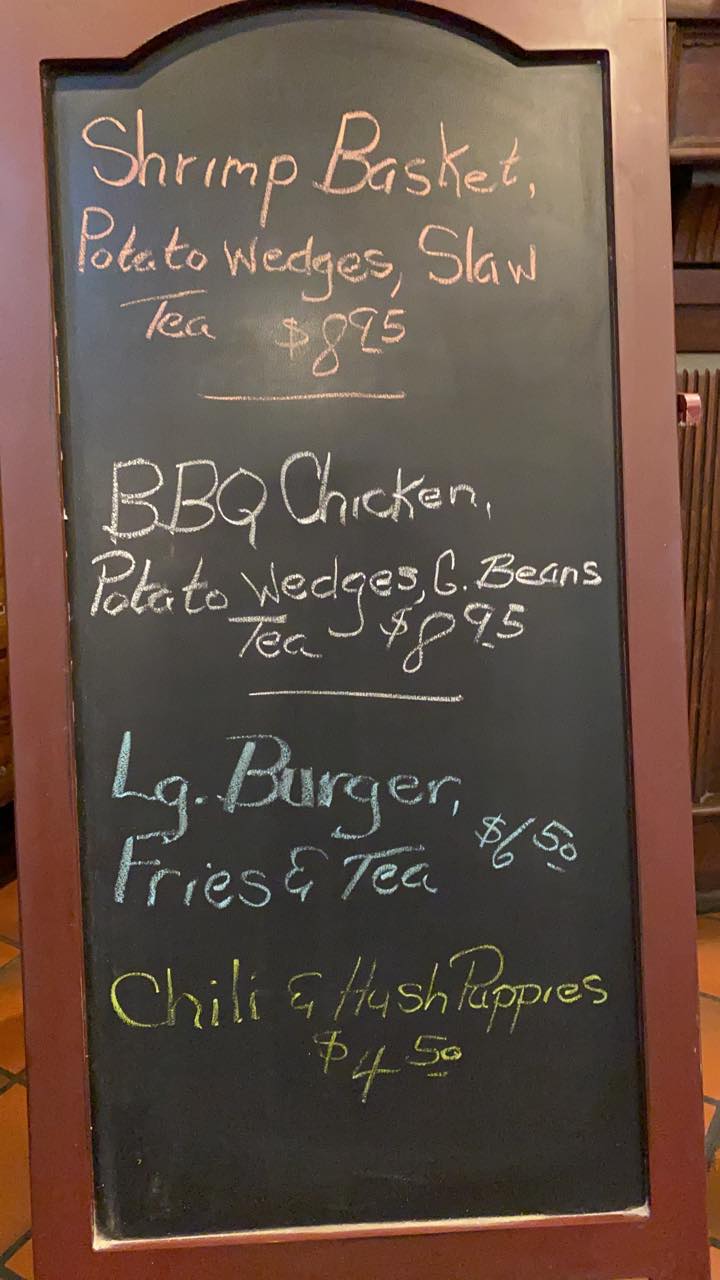 Shrimp Basket,
Potato Wedges, Slaw
Tea $8 95
BBQ Chicken,
Potato Wedges, G. Beans
Tea $8 95
Lg. Burger,
Fries & Tea $6 50
Chili & Hush Puppies
$4 50